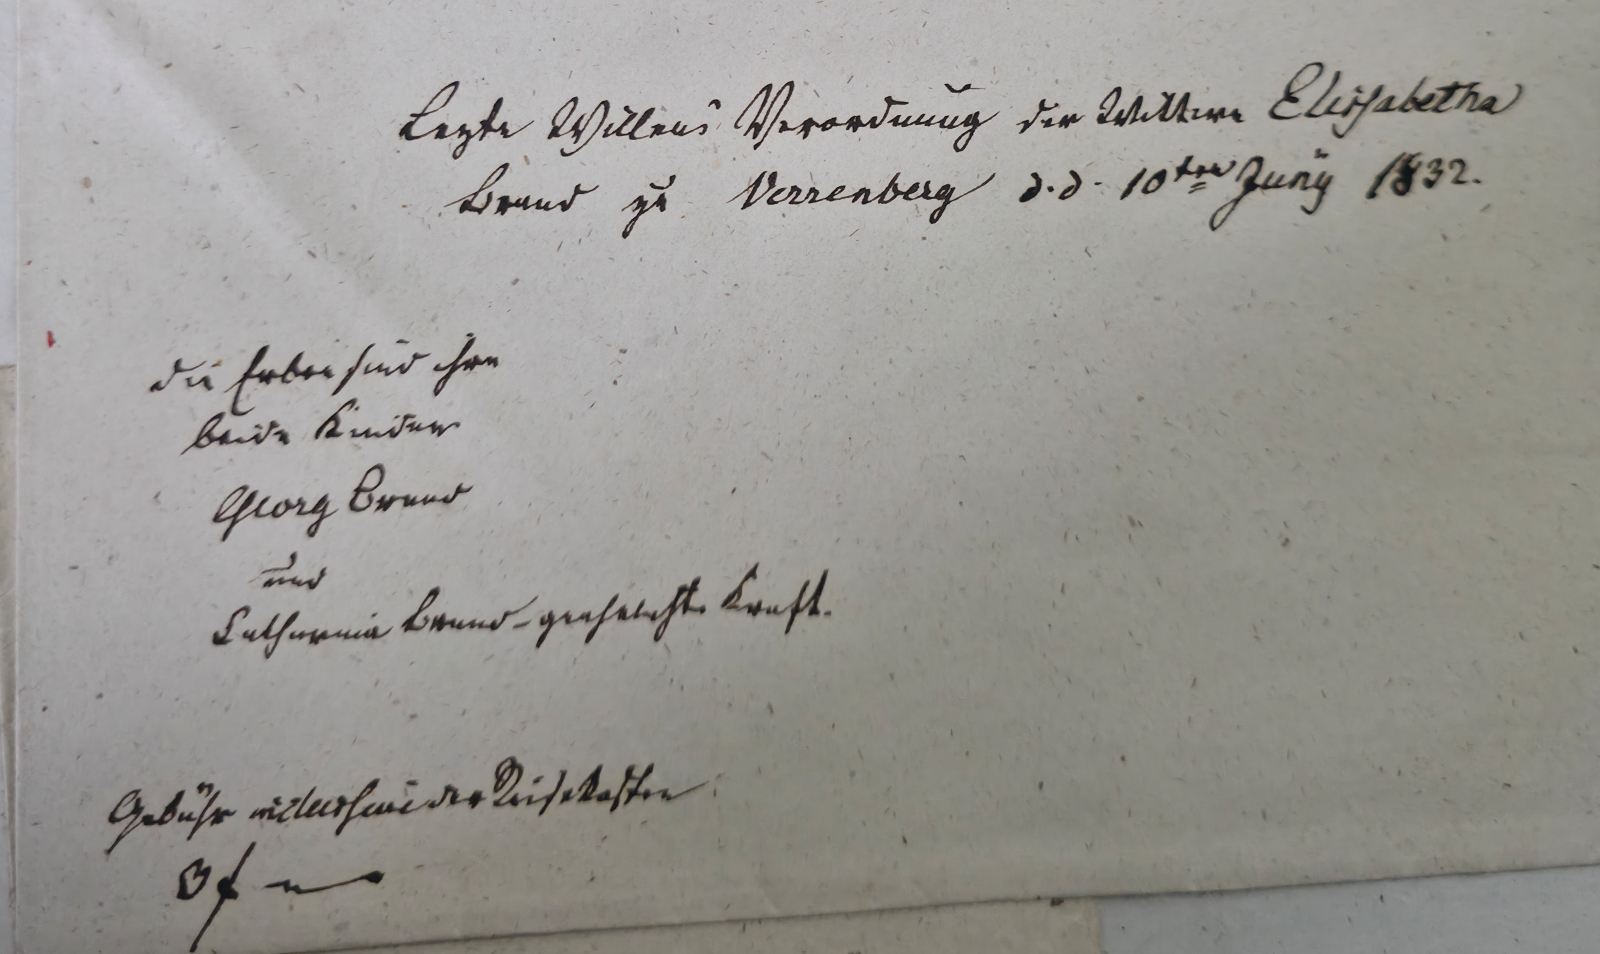 Lezte Willens Verordnung der Wittwe Elisabetha
Brand zu Verrenberg d.d. 10ten Juny 1832.
die Erben sind ihre
beide Kinder
Georg Brand
und
Catharina Brand-geehelichte Kraft.
Gebühr der Reisekosten
3 f —